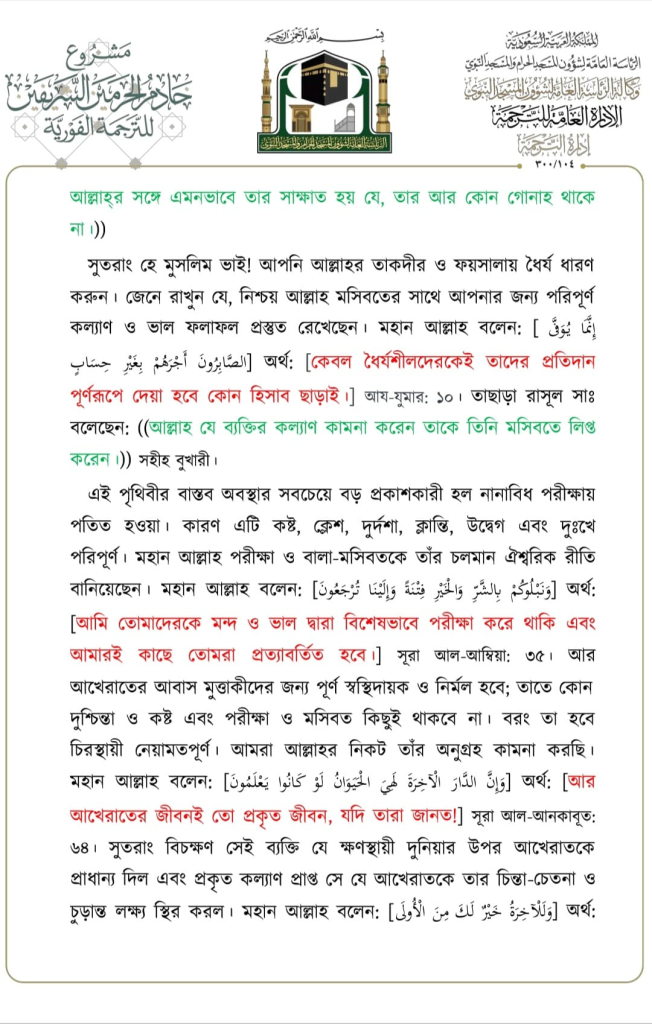 مشروع
خادم الحرمين الشريفين
للترجمة الفورية
بسم الله الرحمن الرحيم
المملكة العربية السعودية
الرئاسة العامة لشؤون المسجد الحرام والمسجد النبوي
وكالة الرئاسة العامة لشؤون المسجد النبوي
الإدارة العامة للترجمة
إدارة الترجمة
٣٠٠/١٠٤
আল্লাহ্‌র সঙ্গে এমনভাবে তার সাক্ষাত হয় যে, তার আর কোন গোনাহ থাকে
না।))
সুতরাং হে মুসলিম ভাই! আপনি আল্লাহর তাকদীর ও ফয়সালায় ধৈর্য ধারণ
করুন। জেনে রাখুন যে, নিশ্চয় আল্লাহ মসিবতের সাথে আপনার জন্য পরিপূর্ণ
কল্যাণ ও ভাল ফলাফল প্রস্তুত রেখেছেন। মহান আল্লাহ বলেন: [ إِنَّمَا يُوَفَّى
الصَّابِرُونَ أَجْرَهُمْ بِغَيْرِ حِسَابٍ] অর্থ: [কেবল ধৈর্যশীলদেরকেই তাদের প্রতিদান
পূর্ণরূপে দেয়া হবে কোন হিসাব ছাড়াই।] আয-যুমার: ১০। তাছাড়া রাসূল সাঃ
বলেছেন: ((আল্লাহ যে ব্যক্তির কল্যাণ কামনা করেন তাকে তিনি মসিবতে লিপ্ত
করেন।)) সহীহ বুখারী।
এই পৃথিবীর বাস্তব অবস্থার সবচেয়ে বড় প্রকাশকারী হল নানাবিধ পরীক্ষায়
পতিত হওয়া। কারণ এটি কষ্ট, ক্লেশ, দুর্দশা, ক্লান্তি, উদ্বেগ এবং দুঃখে
পরিপূর্ণ। মহান আল্লাহ পরীক্ষা ও বালা-মসিবতকে তাঁর চলমান ঐশ্বরিক রীতি
বানিয়েছেন। মহান আল্লাহ বলেন: [وَنَبْلُوكُمْ بِالشَّرِّ وَالْخَيْرِ فِتْنَةً وَإِلَيْنَا تُرْجَعُونَ] অর্থ:
[আমি তোমাদেরকে মন্দ ও ভাল দ্বারা বিশেষভাবে পরীক্ষা করে থাকি এবং
আমারই কাছে তোমরা প্রত্যাবর্তিত হবে।] সূরা আল-আম্বিয়া: ৩৫। আর
আখেরাতের আবাস মুত্তাকীদের জন্য পূর্ণ স্বস্থিদায়ক ও নির্মল হবে; তাতে কোন
দুশ্চিন্তা ও কষ্ট এবং পরীক্ষা ও মসিবত কিছুই থাকবে না। বরং তা হবে
চিরস্থায়ী নেয়ামতপূর্ণ। আমরা আল্লাহর নিকট তাঁর অনুগ্রহ কামনা করছি।
মহান আল্লাহ বলেন: [وَإِنَّ الدَّارَ الْآخِرَةَ لَهِيَ الْحَيَوَانُ لَوْ كَانُوا يَعْلَمُونَ] অর্থ: [আর
আখেরাতের জীবনই তো প্রকৃত জীবন, যদি তারা জানত!] সূরা আল-আনকাবূত:
৬৪। সুতরাং বিচক্ষণ সেই ব্যক্তি যে ক্ষণস্থায়ী দুনিয়ার উপর আখেরাতকে
প্রাধান্য দিল এবং প্রকৃত কল্যাণ প্রাপ্ত সে যে আখেরাতকে তার চিন্তা-চেতনা ও
চুড়ান্ত লক্ষ্য স্থির করল। মহান আল্লাহ বলেন: [وَلَلْآخِرَةُ خَيْرٌ لَكَ مِنَ الْأُولَى] অর্থ: